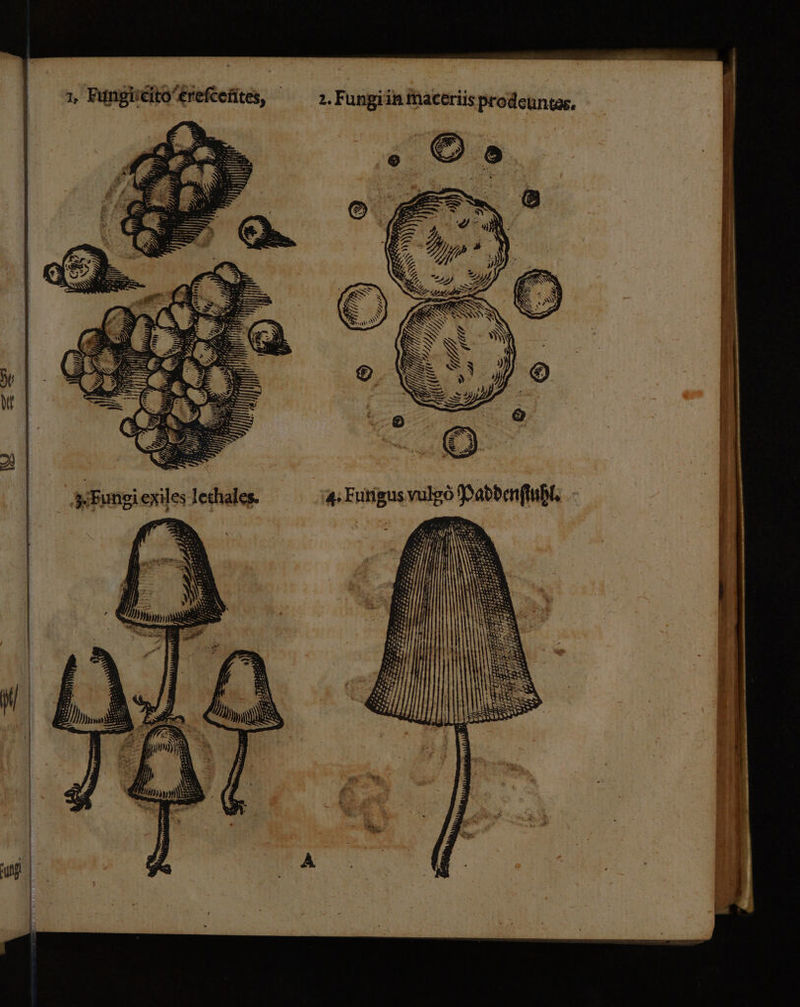 1, Fungi cito creſcentes,
2. Fungi in maceriis prodeuntes.
3. Fungi exiles lethales.
4. Fungus vulgò Paddenſtuhl.
A